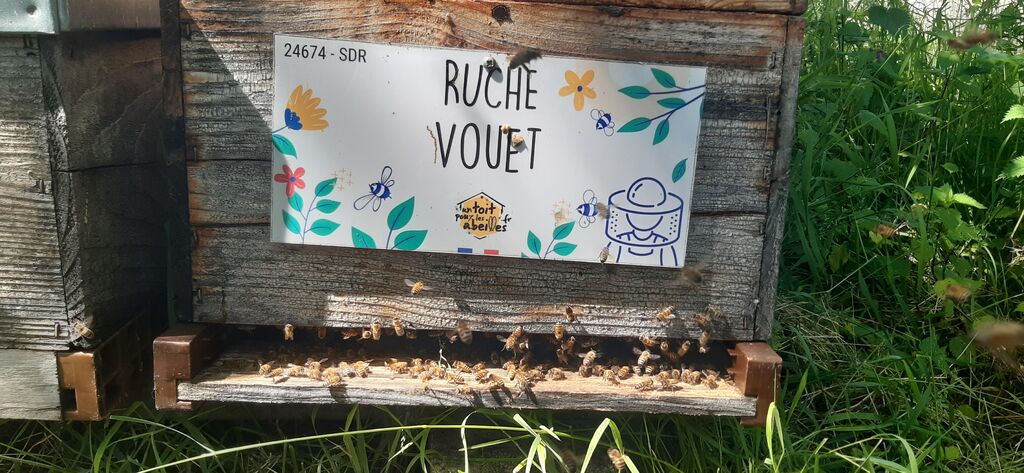 24674 - SDR
RUCHE
VOUET
un toit
pour les .fr
abeilles